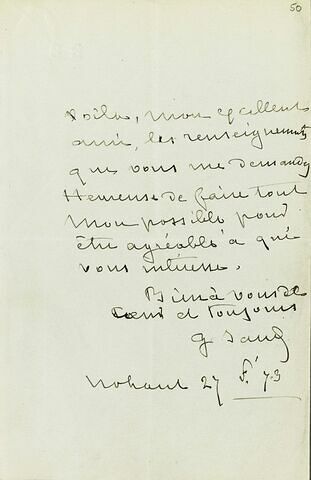 50
Voilà, mon excellent
ami, les renseignements
que vous me demandez
Heureuse de faire tout
mon possible pour
être agréable à qui
vous intéresse.
Bien à vous de
cœur et toujours
G Sand
Nohant 27 f.^r 73